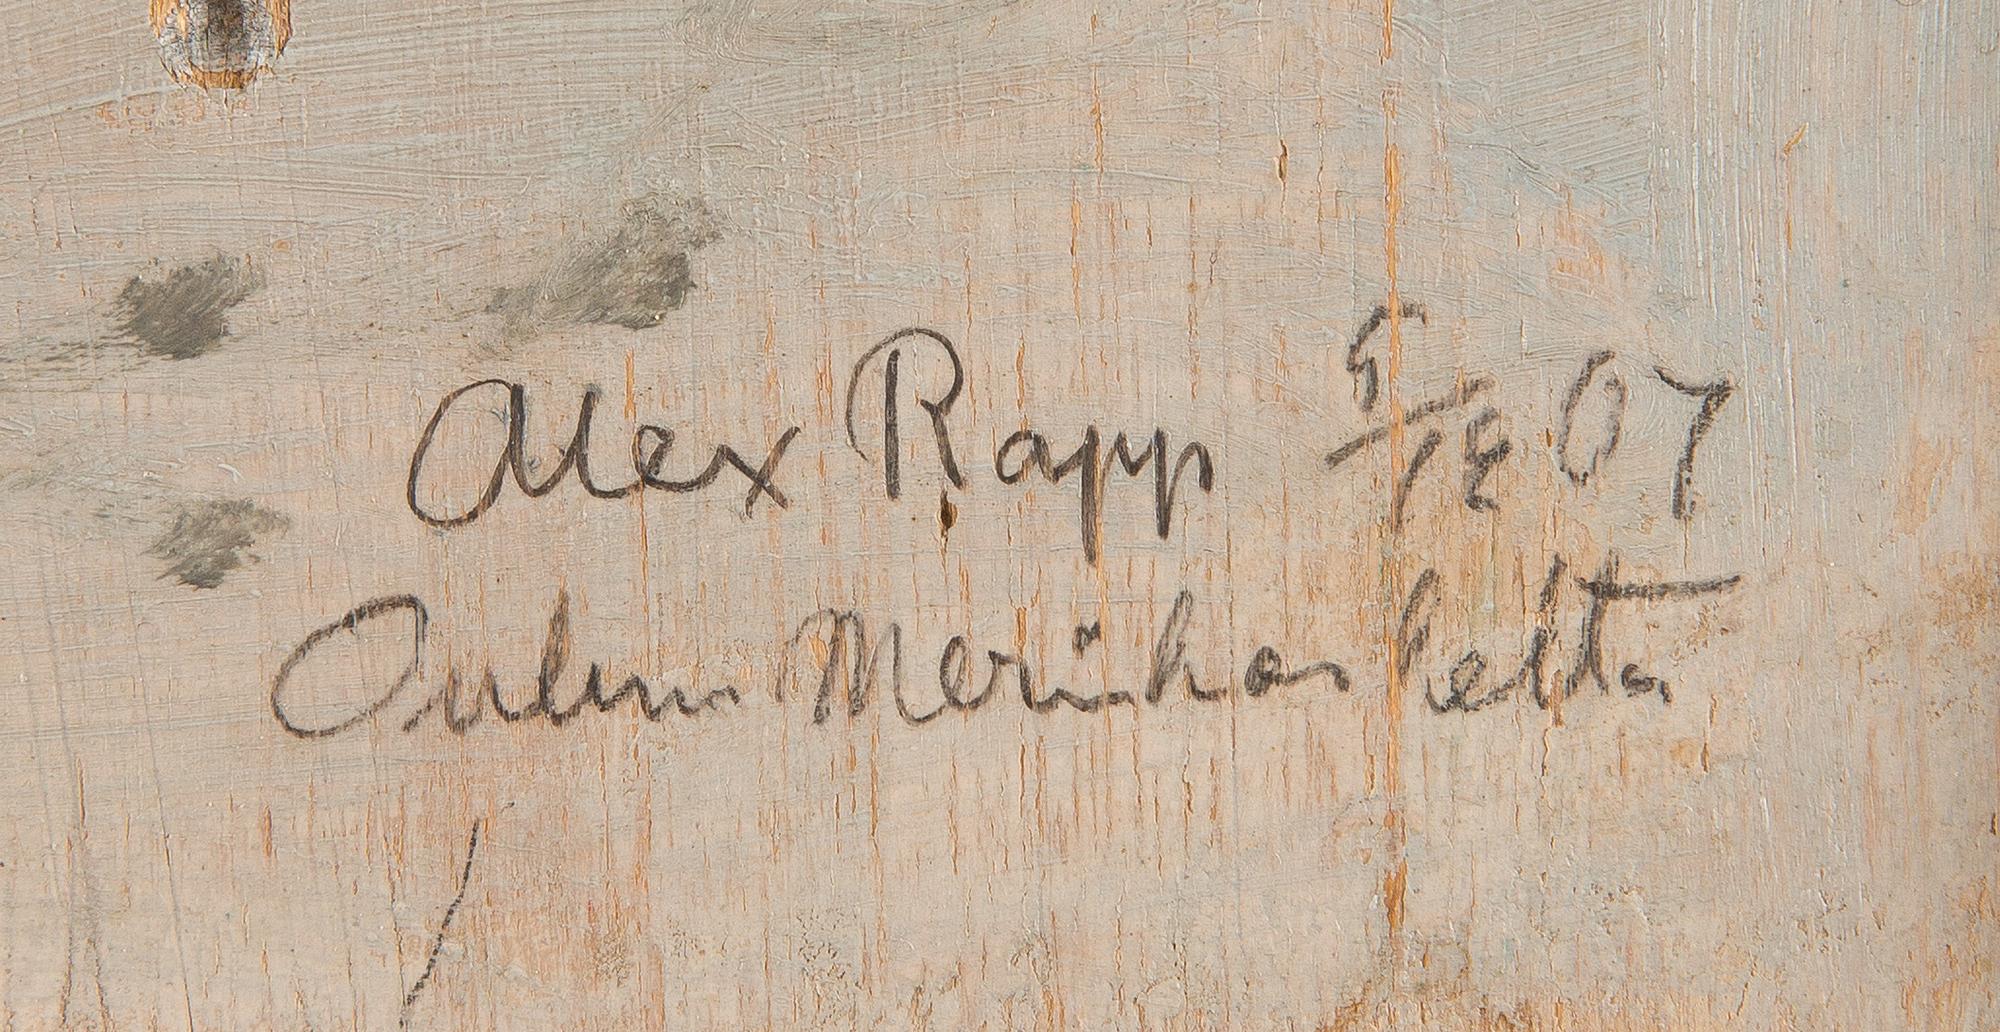 Alex Rapp 5/12 07
Oulun Merikoskelta